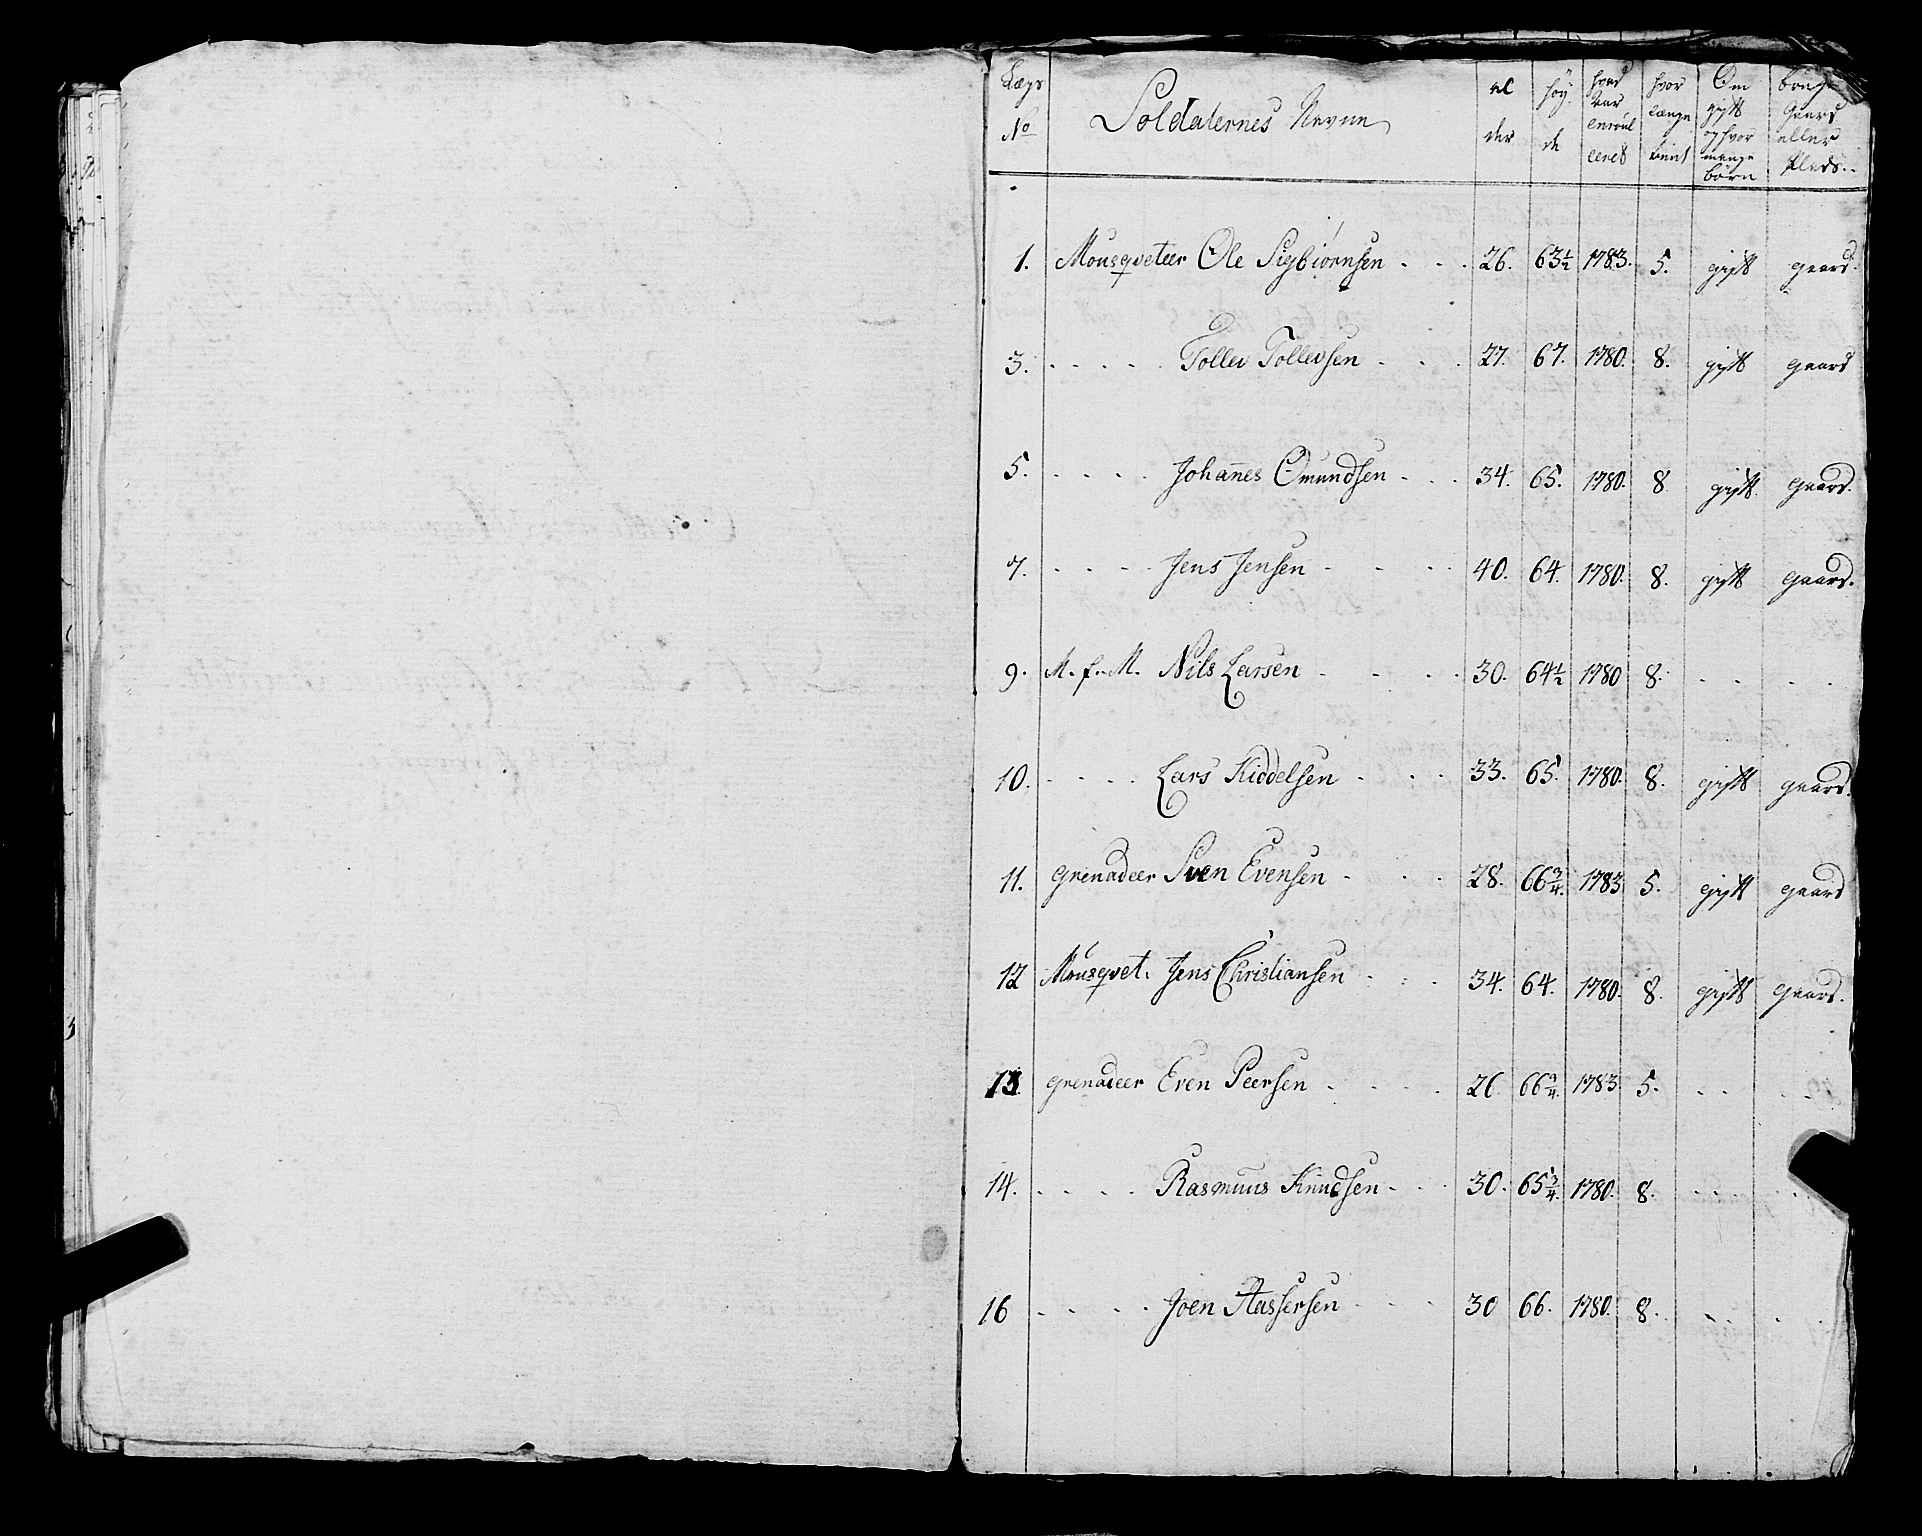 Lægs No | Soldaternes Nevne | al der | höy de | hvad aar enroul leret | hvor længe tient | Om gift og hvor mange börn | bruger Gaard eller Plads..
1. Mousqveteer Ole Sigbiörnsen . . . 26. 63½ 1783. 5. gift gaard.
3. . . . . . Tollev Tollevsen . . . 27. 67. 1780. 8. gift gaard
5. . . . . Johanes Omundsen . . . 34. 65. 1780. 8. gift. gaard.
7. . . . . Jens Jensen . . . 40. 64. 1780. 8. gift gaard.
9. M. f. M. Nils Larsen . . . 30. 64½ 1780 8. . . . .
10. . . . . Lars Kiddelsen . . . 33. 65. 1780. 8. gift gaard.
11. grenadeer Sven Evensen . . . 28. 66¾. 1783 5. gift gaard
12 Mousqvet. Jens Christiansen . . . 34. 64. 1780. 8. gift gaard.
13. grenadeer Even Peersen . . . 26 66¾. 1783. 5. . . . .
14. . . . . Rasmuus Knudsen . . . 30. 65¾. 1780. 8. . . . .
16 . . . . Joen Aassersen . . . 30 66. 1780. 8. . . . .